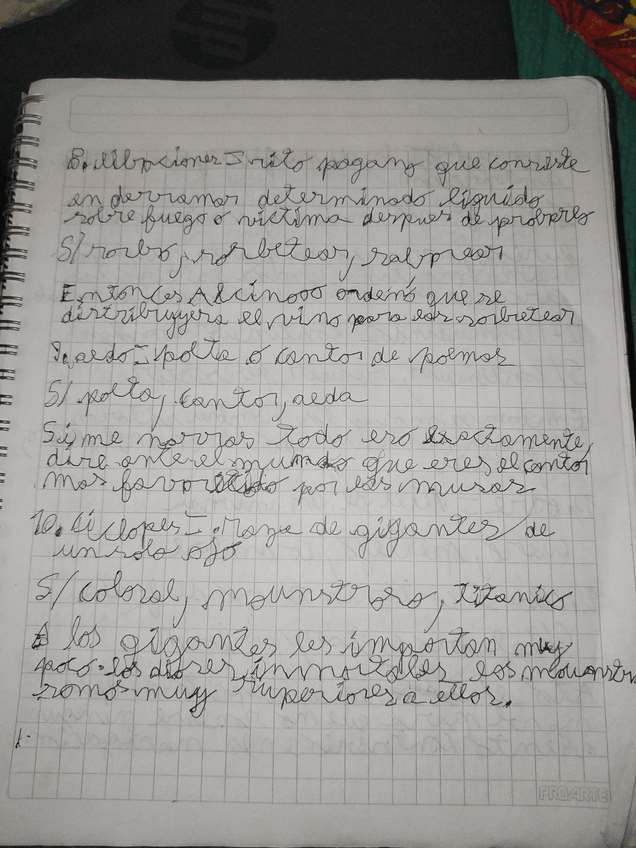 8. libaciones = rito pagano que consiste
en derramar determinado líquido
sobre fuego o víctima despues de probarlo
S/ sorbo, sorbetear, salpicar
Entonces Alcinooo ordenó que se
distribuyyera el vino para las sorbetear
9. aedo = poeta o cantor de poemas
S/ poeta, cantor, aeda
Si me narras todo eso exactamente,
dire ante el mundo que eres el cantor
mas favoritido por las musas
10. Ciclopes = Raza de gigantes de
un solo ojo
S/ colosal, mounstroro, titanico
A los gigantes les importan muy
poco los dioses inmortales, los mounstr
somos muy superiores a ellos.
PROARTE